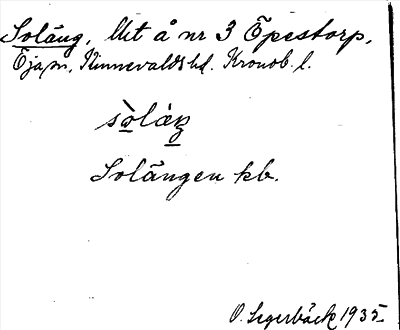 Soläng, Utt å nr 3 Öpestorp,
Öja sn, Kinnevalds hd. Kronob. l.
sòláŋ
Solängen kb.
O. Segerbäck 1935